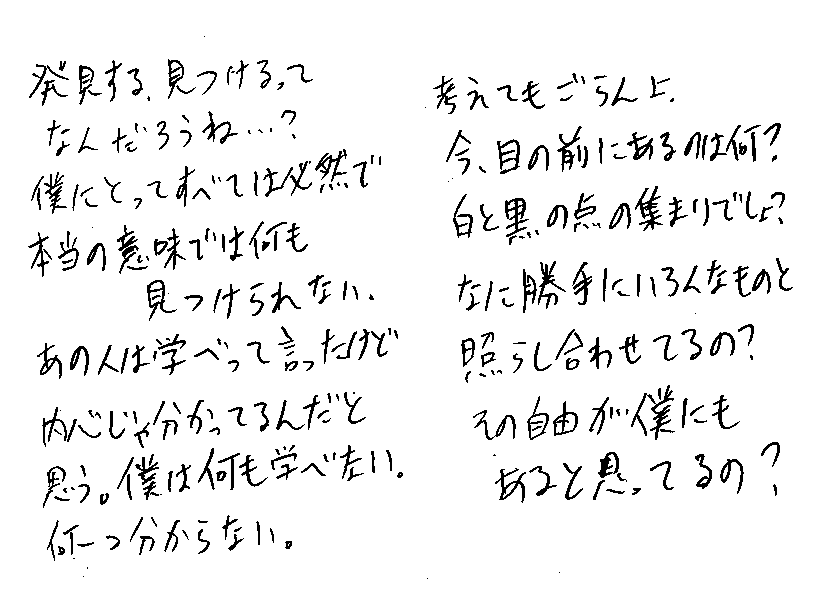 発見する、見つけるって
なんだろうね…?
僕にとってすべては必然で
本当の意味では何も
見つけられない、
あの人は学べって言ったけど
内心じゃ分かってるんだと
思う。僕は何も学べない。
何一つ分からない。
考えてもごらんよ、
今、目の前にあるのは何?
白と黒の点の集まりでしょ?
なに勝手にいろんなものと
照らし合わせてるの?
その自由が僕にも
あると思ってるの?